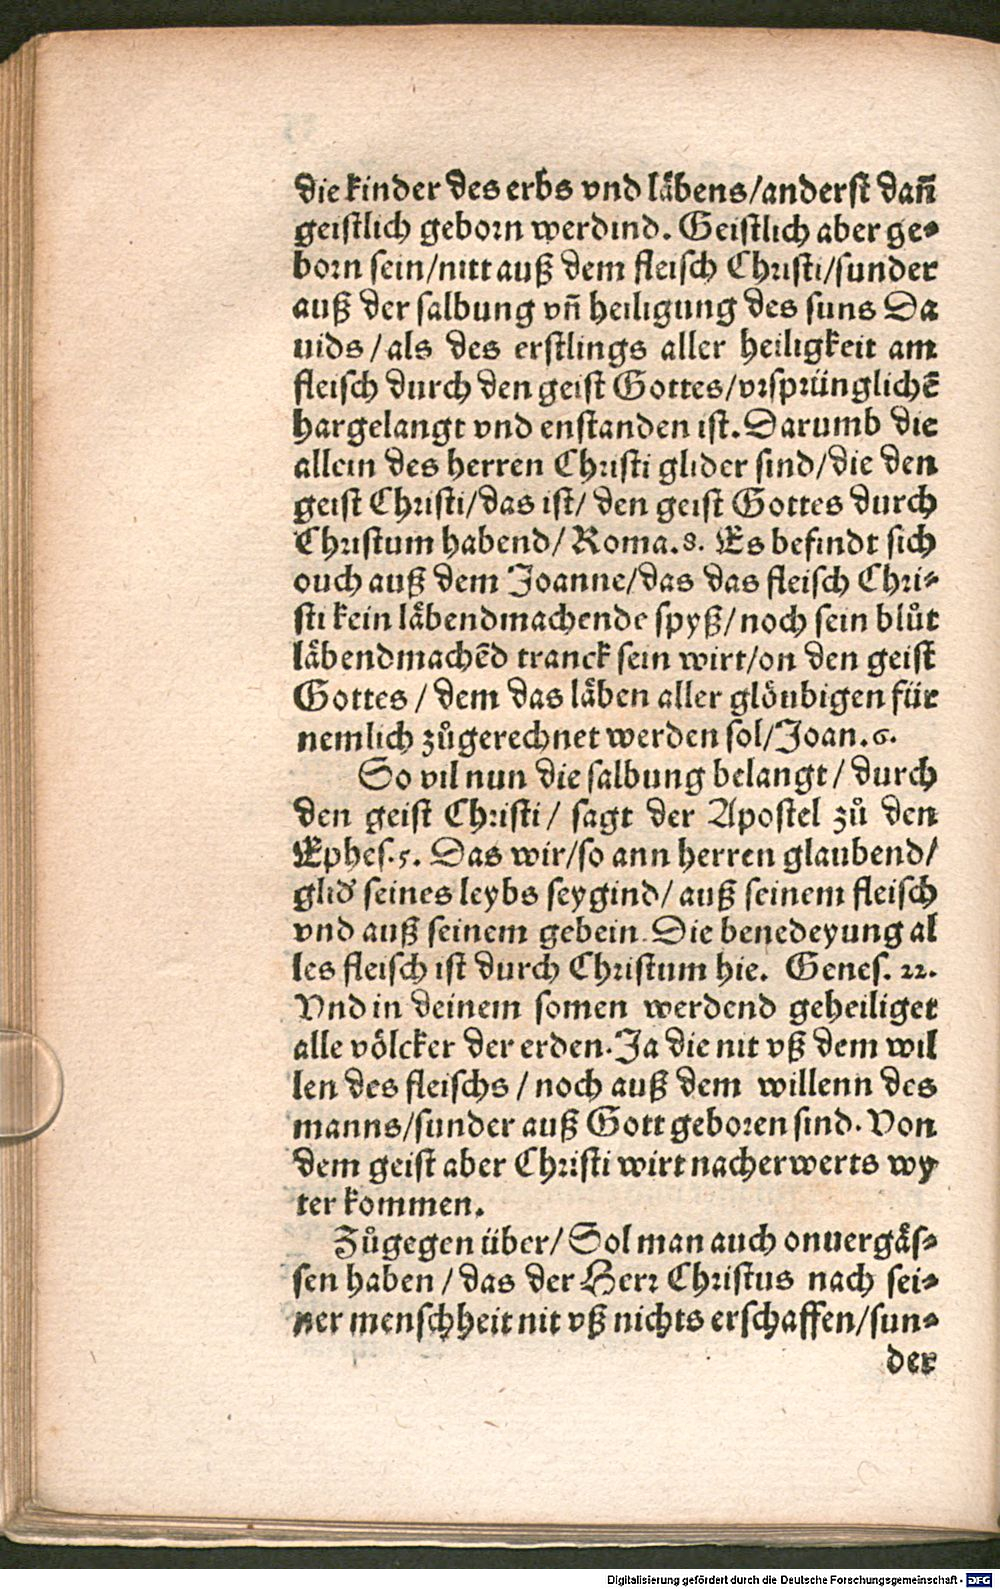 die kinder des erbs vnd läbens/anderst dañ
geistlich geborn werdind. Geistlich aber ge-
born sein/nitt auß dem fleisch Christi/sunder
auß der salbung vñ heiligung des suns Da
uids/als des erstlings aller heiligkeit am
fleisch durch den geist Gottes/vrsprünglichẽ
hargelangt vnd enstanden ist. Darumb die
allein des herren Christi glider sind/die den
geist Christi/das ist/ den geist Gottes durch
Christum habend/ Roma.8. Es befindt sich
ouch auß dem Joanne/das das fleisch Chri-
sti kein läbendmachende spyß/noch sein blůt
läbendmachẽd tranck sein wirt/on den geist
Gottes / dem das läben aller glöubigen für
nemlich zůgerechnet werden sol/Joan.6.
So vil nun die salbung belangt/ durch
den geist Christi/ sagt der Apostel zů den
Ephes.5. Das wir/so ann herren glaubend/
glid' seines leybs seygind/ auß seinem fleisch
vnd auß seinem gebein. Die benedeyung al
les fleisch ist durch Christum hie. Genes. 22.
Vnd in deinem somen werdend geheiliget
alle völcker der erden. Ja die nit vß dem wil
len des fleischs / noch auß dem willenn des
manns/sunder auß Gott geboren sind. Von
dem geist aber Christi wirt nacherwerts wy
ter kommen.
Zůgegen über/ Sol man auch onuergäs-
sen haben / das der Herr Christus nach sei-
ner menschheit nit vß nichts erschaffen/sun-
der
Digitalisierung gefördert durch die Deutsche Forschungsgemeinschaft - DFG